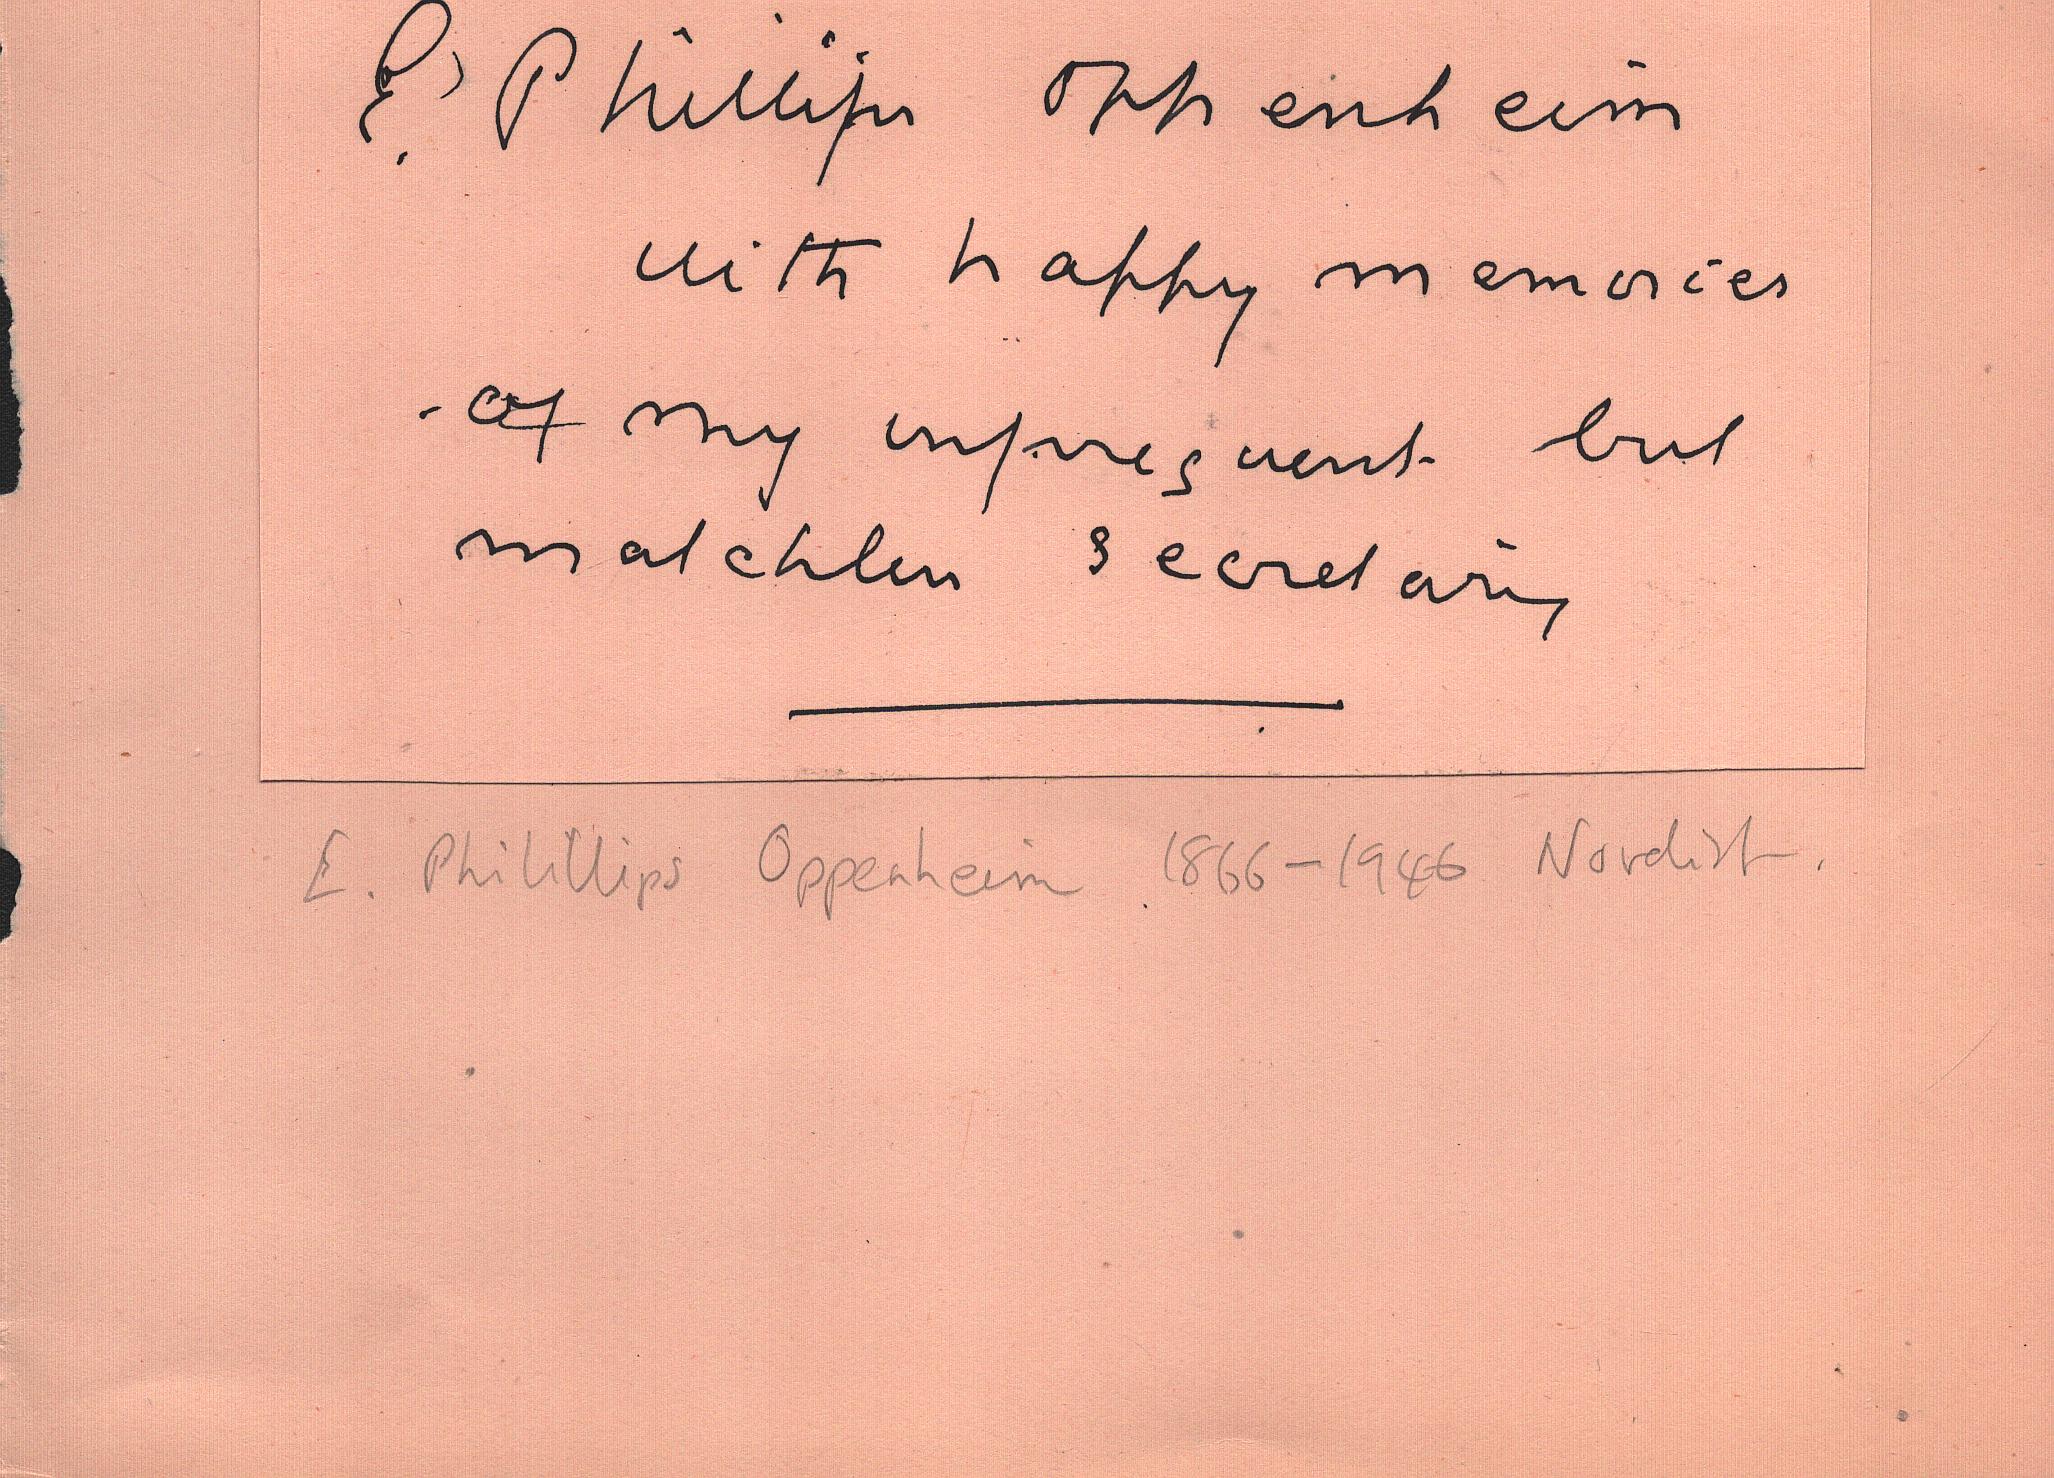 E. Phillips Oppenheim
with happy memories
of my infrequent but
matchless secretary
E. Phillips Oppenheim 1866-1946 Novelist.